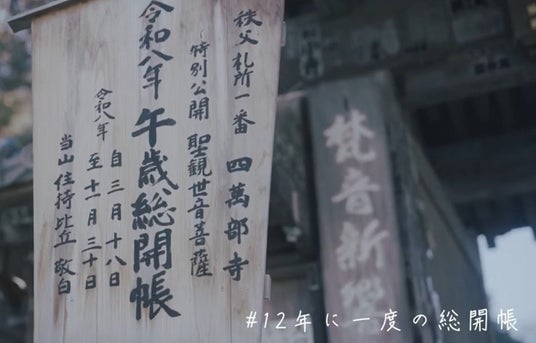 秩父札所一番 四萬部寺
~特別公開 聖観世音菩薩
令和八年 午歳総開帳
令和八年
自三月十八日
至十一月三十日
当山住持比丘 敬白
梵音新
#12年に一度の総開帳